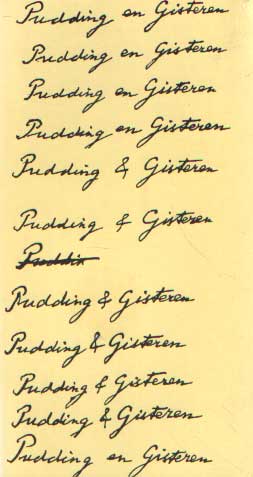 Pudding en Gisteren
Pudding en Gisteren
Pudding en Gisteren
Pudding en Gisteren
Pudding & Gisteren
Pudding & Gisteren
Puddin
Pudding & Gisteren
Pudding & Gisteren
Pudding & Gisteren
Pudding & Gisteren
Pudding en Gisteren